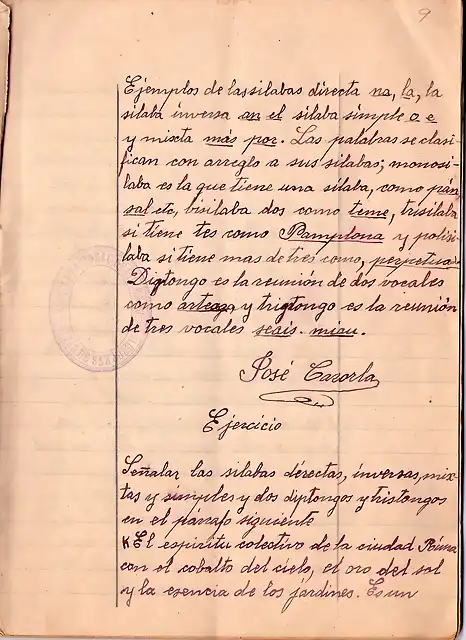 9
Ejemplos de las silabas directa na, la, la
silaba inversa an el silaba simple o e
y mixta más por. Las palabras se clasi-
fican con arreglo a sus silabas; monosi-
laba es la que tiene una silaba, como pan,
sal etc, bisilaba dos como teme, trisilaba
si tiene tes como Pamplona y polisi-
laba si tiene mas de tres como, perpetua
Digtongo es la reunión de dos vocales
como y trigtongo es la reunión
de tres vocales seais. miau.
José Cazorla
Ejercicio
Señalar las silabas directas, inversas, mix-
tas y simples y dos diptongos y tristongos
en el párrafo siguiente
El espiritu colectivo de la ciudad
con el cobalto del cielo, el oro del sol
y la esencia de los jardines. Es un